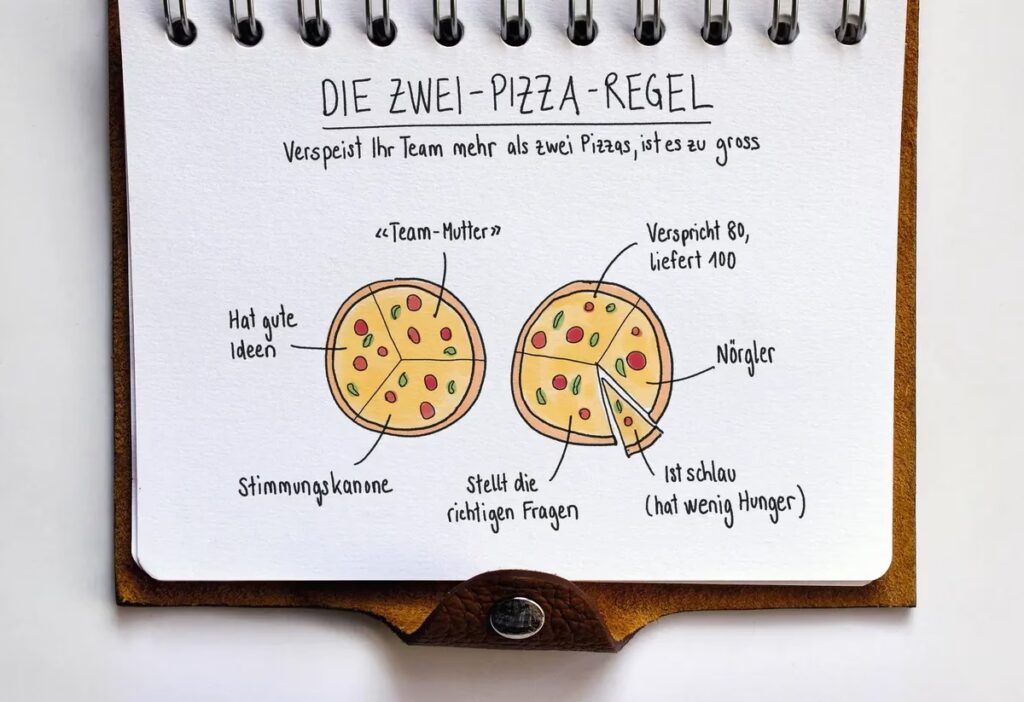 DIE ZWEI-PIZZA-REGEL
Verspeist Ihr Team mehr als zwei Pizzas, ist es zu gross
«Team-Mutter»
Verspricht 80,
liefert 100
Hat gute
Ideen
Nörgler
Stimmungskanone
Stellt die
richtigen Fragen
Ist schlau
(hat wenig Hunger)